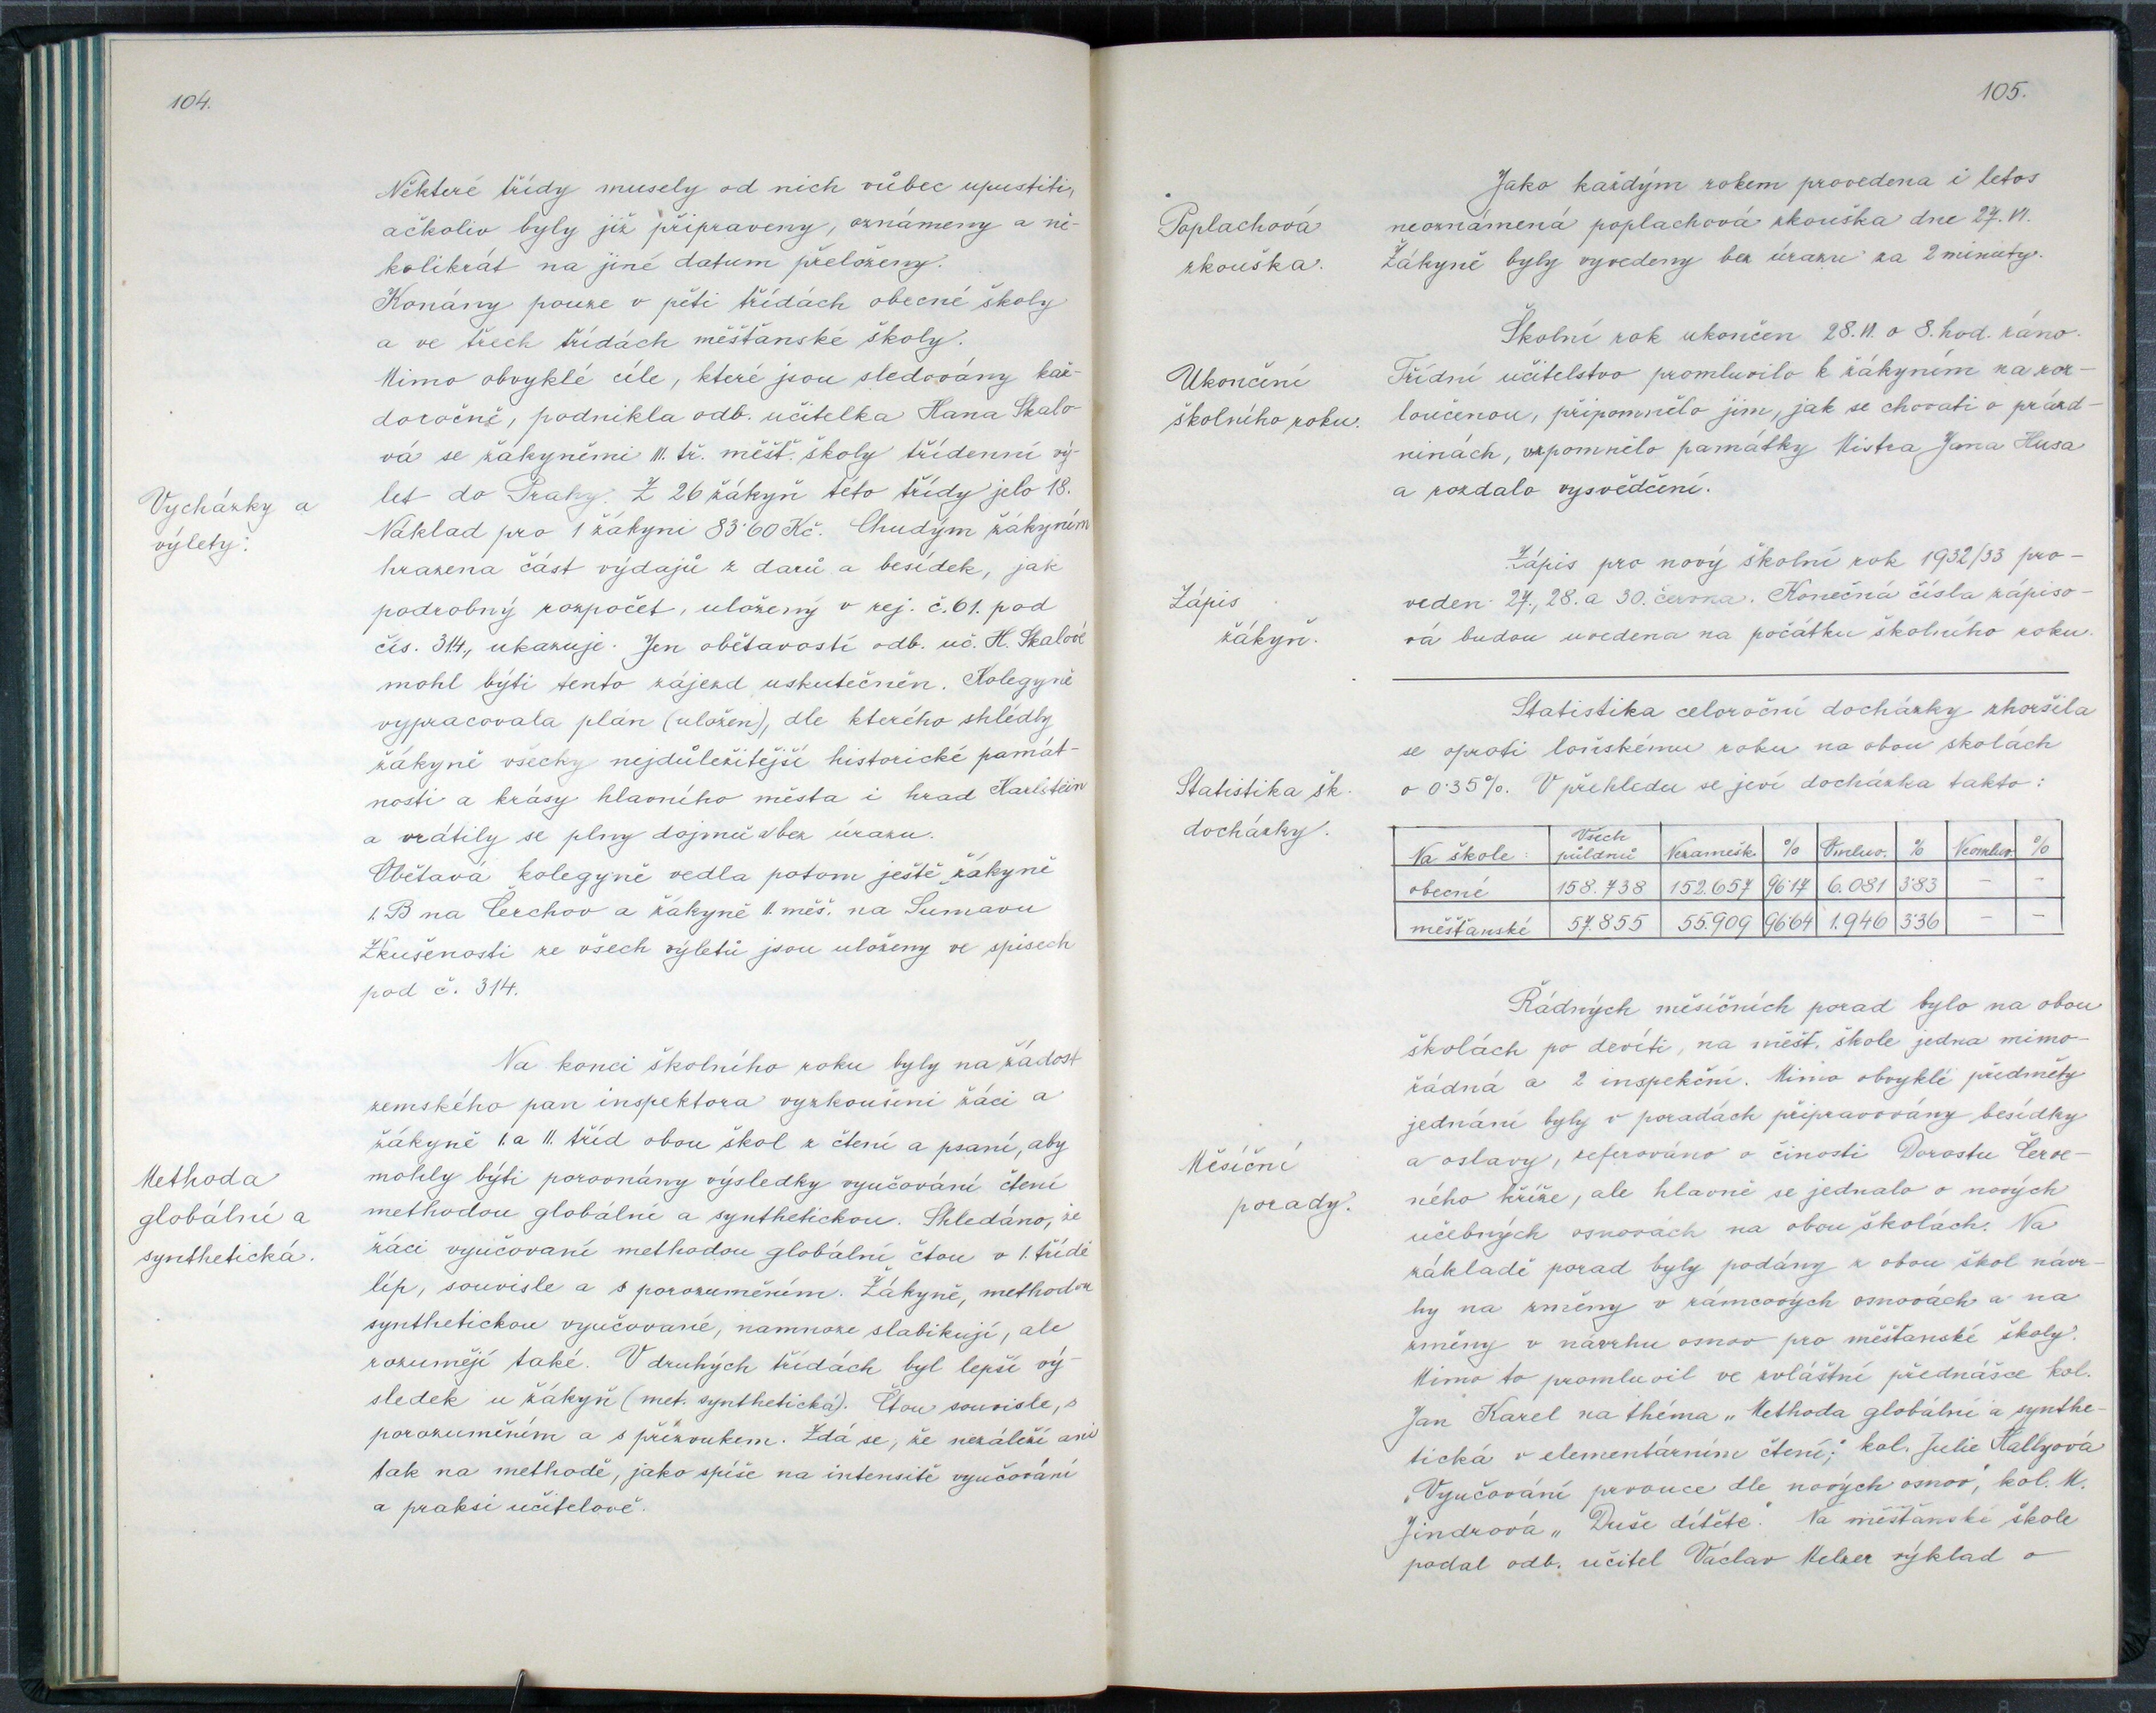 104.
Některé třídy musely od nich vůbec upustiti,
ačkoliv byly již připraveny, oznámeny a ně-
kolikrát na jiné datum přeloženy.
Konány pouze v pěti třídách obecné školy
a ve třech třídách měšťanské školy.
Mimo obvyklé cíle, které jsou sledovány kaž-
doročně, podnikla odb. učitelka Hana Skalo-
vá se žákyněmi III. tř. měšť. školy třídenní vý-
Vycházky a
výlety:
let do Prahy. Z 26 žákyň této třídy jelo 18.
Náklad pro 1 žákyni 83·60 Kč. Chudým žákyním
hrazena část výdajů z darů a besídek, jak
podrobný rozpočet, uložený v rej. č. 61. pod
čís. 314., ukazuje. Jen obětavostí odb. uč. H. Skalové
mohl býti tento zájezd uskutečněn. Kolegyně
vypracovala plán (uložen), dle kterého shlédly
žákyně všecky nejdůležitější historické památ-
nosti a krásy hlavního města i hrad Karlštein
a vrátily se plny dojmů a bez úrazu.
Obětavá kolegyně vedla potom ještě žákyně
I. B na Čerchov a žákyně II. měš. na Šumavu
Zkušenosti ze všech výletů jsou uloženy ve spisech
pod č. 314.
Na konci školního roku byly na žádost
zemského pan inspektora vyzkoušeni žáci a
žákyně I. a II. tříd obou škol z čtení a psaní, aby
Methoda
globální a
synthetická.
mohly býti porovnány výsledky vyučování čtení
methodou globální a synthetickou. Shledáno, že
žáci vyučovaní methodou globální čtou v I. třídě
líp, souvisle a s porozuměním. Žákyně, methodou
synthetickou vyučované, namnoze slabikují, ale
rozumějí také. V druhých třídách byl lepší vý-
sledek u žákyň (met. synthetická). Čtou souvisle, s
porozuměním a s přízvukem. Zdá se, že nezáleží ani
tak na methodě, jako spíše na intensitě vyučování
a praksi učitelově.
105.
Jako každým rokem provedena i letos
Poplachová
zkouška.
neoznámená poplachová zkouška dne 27. VI.
Žákyně byly vyvedeny bez úrazu za 2 minuty.
Školní rok ukončen 28. VI. o 8. hod. ráno.
Ukončení
školního roku.
Třídní učitelstvo promluvilo k žákyním na roz-
loučenou, připomnělo jim, jak se chovati o prázd-
ninách, vzpomnělo památky Mistra Jana Husa
a rozdalo vysvědčení.
Zápis pro nový školní rok 1932/33 pro-
Zápis
žákyň.
veden 27., 28. a 30. června. Konečná čísla zápiso-
vá budou uvedena na počátku školního roku.
Statistika celoroční docházky zhoršila
se oproti loňskému roku na obou skolách
Statistika šk.
docházky.
o 0·35%. V přehledu se jeví docházka takto:
Na škole: Všech půldnů Nezamešk. % Omluv. % Neomluv. %
obecné 158.738 152.657 96·17 6.081 3·83 – –
měšťanské 57.855 55.909 96·64 1.946 3·36 – –
Řádných měsíčních porad bylo na obou
školách po devíti, na měšť. škole jedna mimo-
řádná a 2 inspekční. Mimo obvyklé předměty
jednání byly v poradách připravovány besídky
Měsíční
porady.
a oslavy, referováno o činosti Dorostu Červe-
ného kříže, ale hlavně se jednalo o nových
učebných osnovách na obou školách. Na
základě porad byly podány z obou škol návr-
hy na změny v rámcových osnovách a na
změny v návrhu osnov pro měšťanské školy.
Mimo to promluvil ve zvláštní přednášce kol.
Jan Karel na théma „Methoda globální a synthe-
tická v elementárním čtení;" kol. Julie Hallyová
„Vyučování prvouce dle nových osnov", kol. M.
Jindrová „Duše dítěte." Na měšťanské škole
podal odb. učitel Václav Melzer výklad o